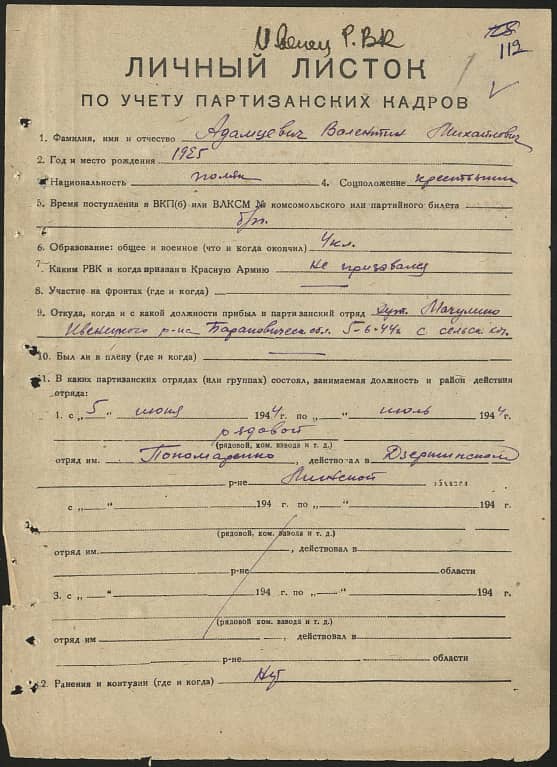 Ивенец Р.ВК
112
ЛИЧНЫЙ ЛИСТОК
ПО УЧЕТУ ПАРТИЗАНСКИХ КАДРОВ
1. Фамилия, имя и отчество Адамцевич Валентин Михайлович
2. Год и место рождения 1925
3. Национальность поляк 4. Соцположение крестьянин
5. Время поступления в ВКП(б) или ВЛКСМ № комсомольского или партийного билета
б/п.
6. Образование: общее и военное (что и когда окончил) 4 кл.
7. Каким РВК и когда призван в Красную Армию Не призовался
8. Участие на фронтах (где и когда)
9. Откуда, когда и с какой должности прибыл в партизанский отряд Мачулино
Ивенецкого р-на Барановическ обл. 5-6-44г с сельск
10. Был ли в плену (где и когда)
11. В каких партизанских отрядах (или группах) состоял, занимаемая должность и район действия
отряда:
1. с „5 " июня 1944 г. по „ " июль 1944 г.
рядовой
(рядовой, ком. взвода и т. д.)
отряд им. Пономаренко, действовал в Дзержинском
р-не Минской области
с „ " 194 г. по „ " 194 г.
(рядовой, ком. взвода и т. д.)
отряд им. , действовал в
р-не области
3. с „ " 194 г. по „ " 194 г.
(рядовой ком. взвода и т. д.)
отряд им , действовал в
р-не области
12. Ранения и контузии (где и когда) Нет